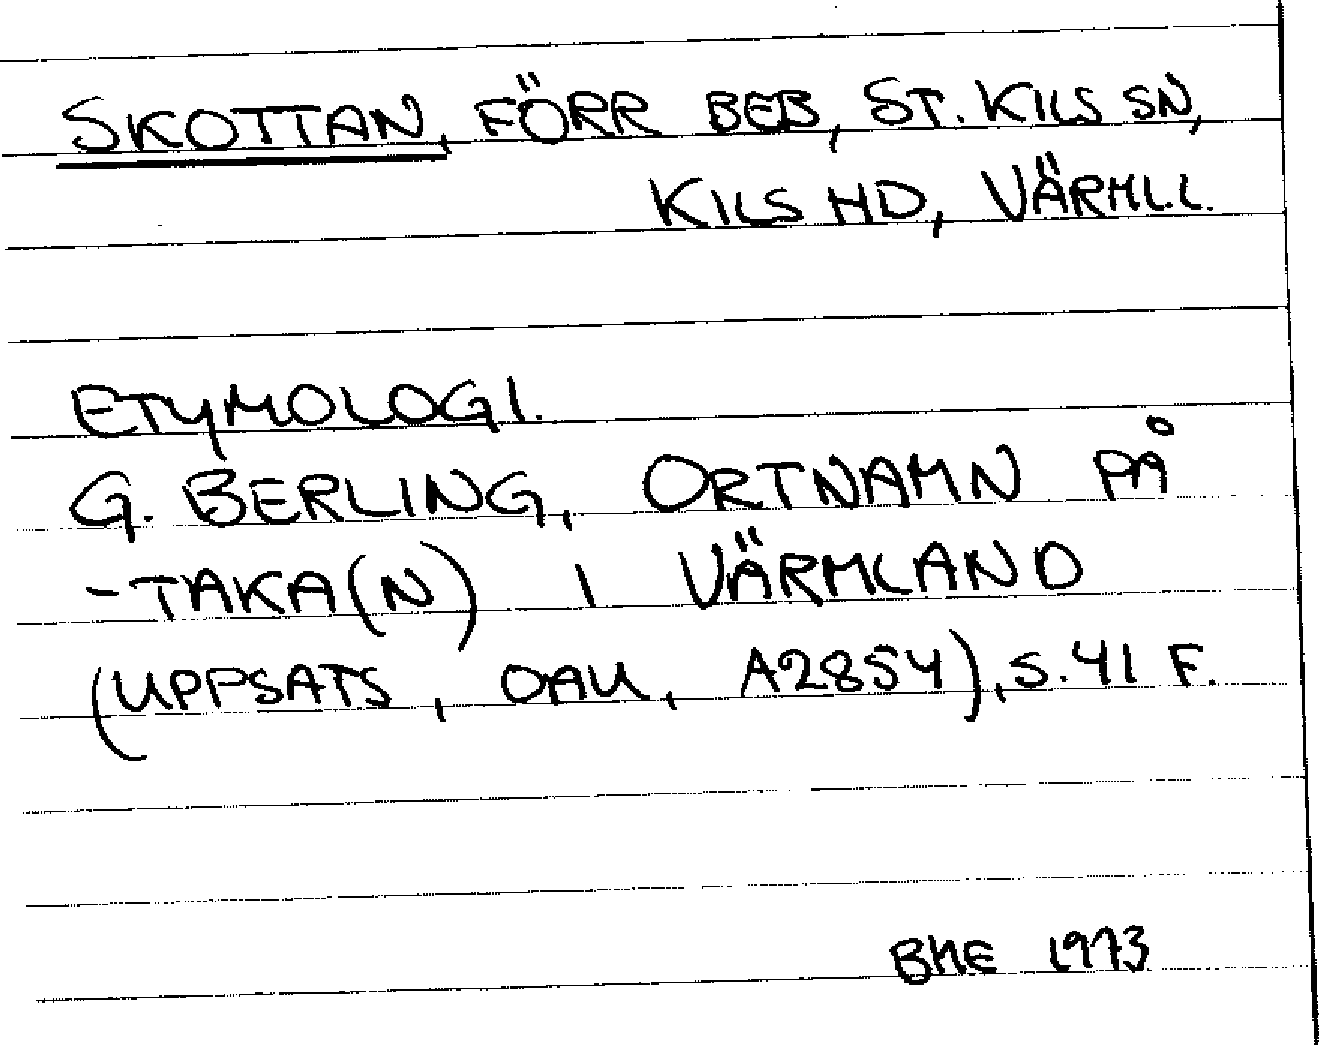 SKOTTAN, FÖRR BEB, ST. KILS SN,
KILS HD, VÄRML.L.
ETYMOLOGI.
G. BERLING, ORTNAMN PÅ
-TAKA(N) I VÄRMLAND
(UPPSATS, OAU, A2854), S. 41 F.
BHE 1973